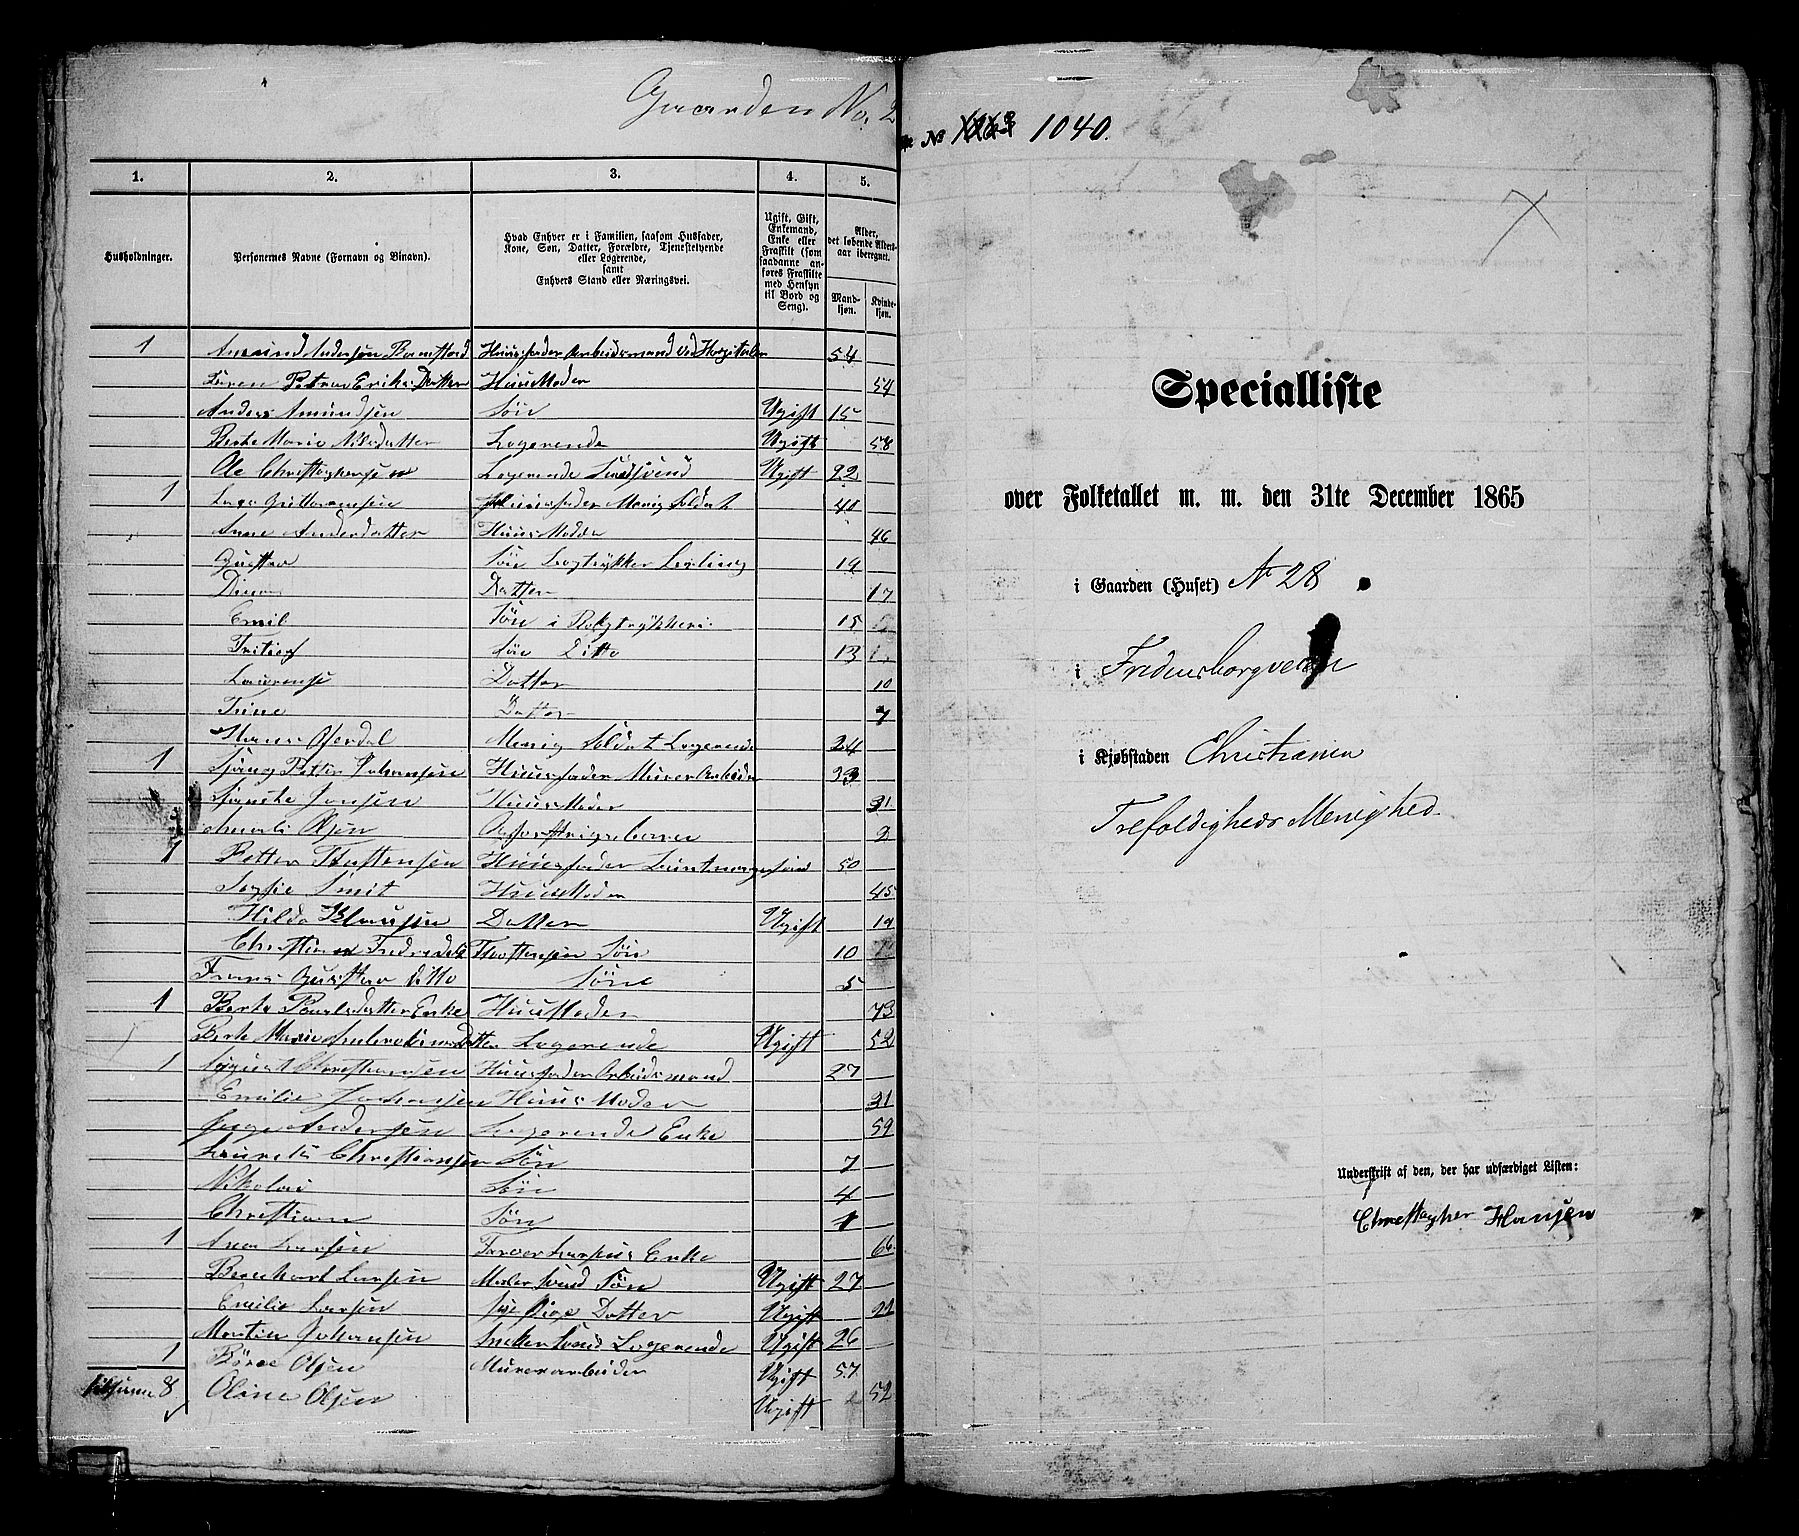 Gaarden No. 2
1. 2. 3. 4. 5.
Husholdninger.
Personernes Navne (Fornavn og Binavn).
Hvad Enhver er i Familien, saasom Husfader,
Kone, Søn, Datter, Forældre, Tjenestetyende
eller Logerende,
samt
Enhvers Stand eller Næringsvei.
Ugift, Gift,
Enkemand,
Enke eller
Fraskilt (som
saadanne an-
føres Fraskilte
med Hensyn
til Bord og
Seng).
Alder,
det løbende Alders-
aar iberegnet.
Mand-
kjøn.
Kvinde-
kjøn.
1 Amund Andersen Huusfader Arbeidsmand ved Hospitalet 54
Petrea Eriks Datter HuusModer 54
Anders Amundsen Søn Ugift 15
Berte Marie Nilsdatter Logerende Ugift 58
Ole Christophersen Logerende Ugift 22
1 Huusfader Menig Soldat 40
Anne Andersdatter HuusModer 46
Gustav Søn Bogtrykker Lerling 19
Datter 17
Emil Søn i Bogtrykkeri 15
Søn Ditto 13
Laurense Datter 10
Trine Datter 7
Menig Soldat Logerende 24
1 Petter Johansen Huusfader Murer Arbeider 33
Jonsen HuusModer 31
Olsen 2
1 Petter Thostensen Huusfader 50
Sofie Smit HuusModer 45
Hilda Klausen Datter Ugift 19
Christian Fredrik Thostensen Søn 10
Frans Gustav ditto Søn 5
1 Berte Poulsdatter Enke HuusModer 73
Berte Marie Datter Logerende Ugift 52
1 August Christiansen Huusfader Arbeidsmand 27
Emilie Johansen Huus Moder 31
Inge Andersen Logerende Enke 59
Laurits Christiansen Søn 7
Nikolai Søn 4
Christian Søn 1
1 Ana Larsen Enke 66
Bernhart Larsen Maler Svend Søn Ugift 27
Emilie Larsen Datter Ugift 22
Martin Johansen Snekker Svend Logerende Ugift 26
1 Børre Olsen Murerarbeider Ugift 57
8 Oline Olsen Ugift 52
No 1040.
Specialliste
over Folketallet m. m. den 31te December 1865
i Gaarden (Huset) No 28
i Fredensborgveien
i Kjøbstaden Christiania
Trefoldigheds Menighed.
Underskrift af den, der har udfærdiget Listen:
Christopher Hansen